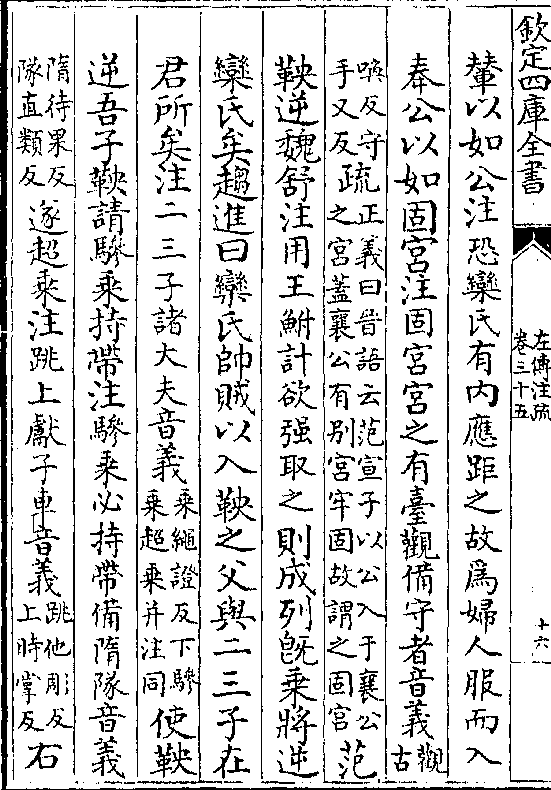 欽定四庫全書
左傳注疏
卷三十五
十六
輦以如公注恐欒氏有内應距之故爲婦人服而入
奉公以如固宮注固宮宮之有臺觀備守者音義觀古
喚反守手又反疏正義曰晉語云范宣子以公入于襄公之宮蓋襄公有别宮牢固故謂之固宮范
鞅逆魏舒注用王鮒計欲强取之則成列旣乘將逆
欒氏矣趨進曰欒氏帥賊以入鞅之父與二三子在
君所矣注二三子諸大夫音義乘繩證反下驂乘超乘并注同使鞅
逆吾子鞅請驂乘持帶注驂乘必持帶備隋隊音義
隋待果反隊直類反遂超乘注跳上獻子車音義跳他彫反上時掌反右